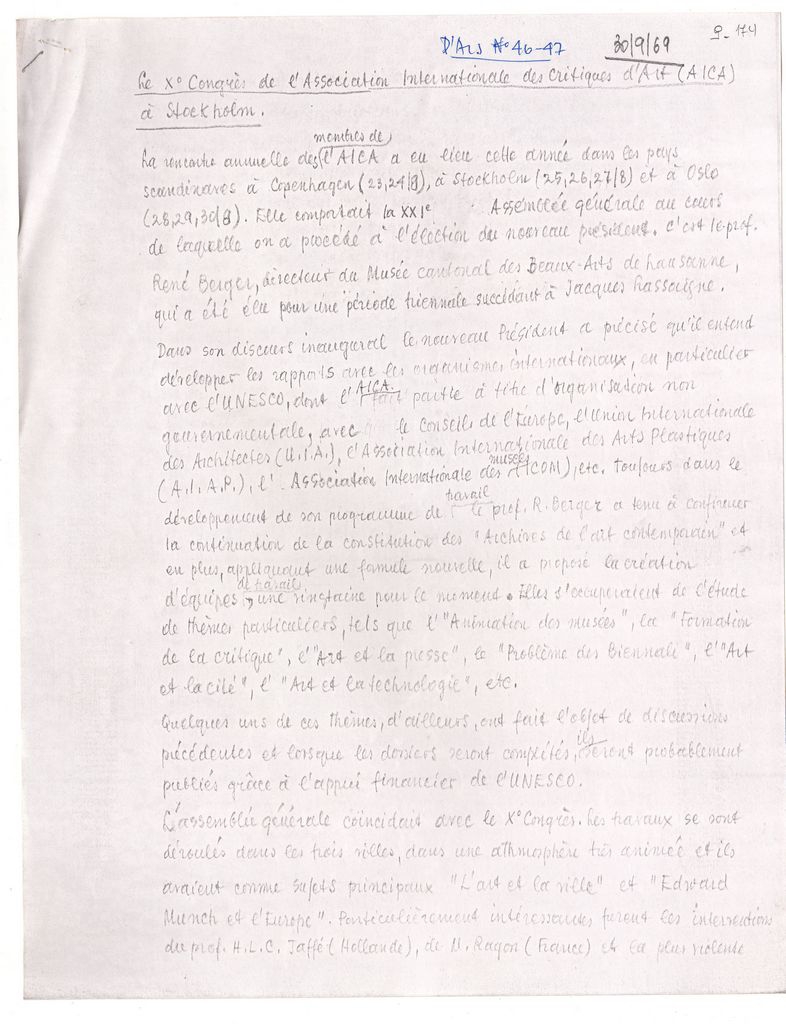 D'Ars N° 46-47 30/9/69 9-174
Le X° Congrès de l'Association Internationale des Critiques d'Art (AICA)
à Stockholm.
membres de
La rencontre annuelle des l'AICA a eu lieu cette année dans les pays
scandinaves à Copenhagen (23,24/8), à Stockholm (25,26,27/8) et à Oslo
(28,29,30/8). Elle comportait la XXIe Assemblée générale au cours
de laquelle on a procédé à l'élection du nouveau président. C'est le prof.
René Berger, directeur du Musée cantonal des Beaux-Arts de Lausanne,
qui a été élu pour une période triennale succédant à Jacques Lassaigne.
Dans son discours inaugural le nouveau Président a précisé qu'il entend
développer les rapports avec les organismes internationaux, en particulier
avec l'UNESCO, dont l'AICA fait partie à titre d'organisation non
gouvernementale, avec le Conseils de l'Europe, l'Union Internationale
des Architectes (U.I.A.), l'Association Internationale des Arts Plastiques
musées
(A.I.A.P.), l'Association Internationale des (ICOM), etc. Toujours dans le
travail
développement de son programme de le prof. R. Berger a tenu à confirmer
la continuation de la constitution des "Archives de l'art contemporain" et
en plus, appliquant une formule nouvelle, il a proposé la création
de travail
d'équipes, une vingtaine pour le moment. Elles s'occuperaient de l'étude
de thèmes particuliers, tels que l'"Animation des musées", la "Formation
de la critique", l'"Art et la presse", le "Problème des Biennali", l'"Art
et la cité", l'"Art et la technologie", etc.
Quelques uns de ces thèmes, d'ailleurs, ont fait l'objet de discussions
ils
précédentes et lorsque les dossiers seront complétés, seront probablement
publiés grâce à l'appui financier de l'UNESCO.
L'assemblée générale coïncidait avec le X° Congrès. Les travaux se sont
déroulés dans les trois villes, dans une athmosphère très animée et ils
avaient comme sujets principaux "L'art et la ville" et "Edward
Munch et l'Europe". Particulièrement intéressantes furent les interventions
du prof. H.L.C. Jaffé (Hollande), de M. Ragon (France) et la plus violente